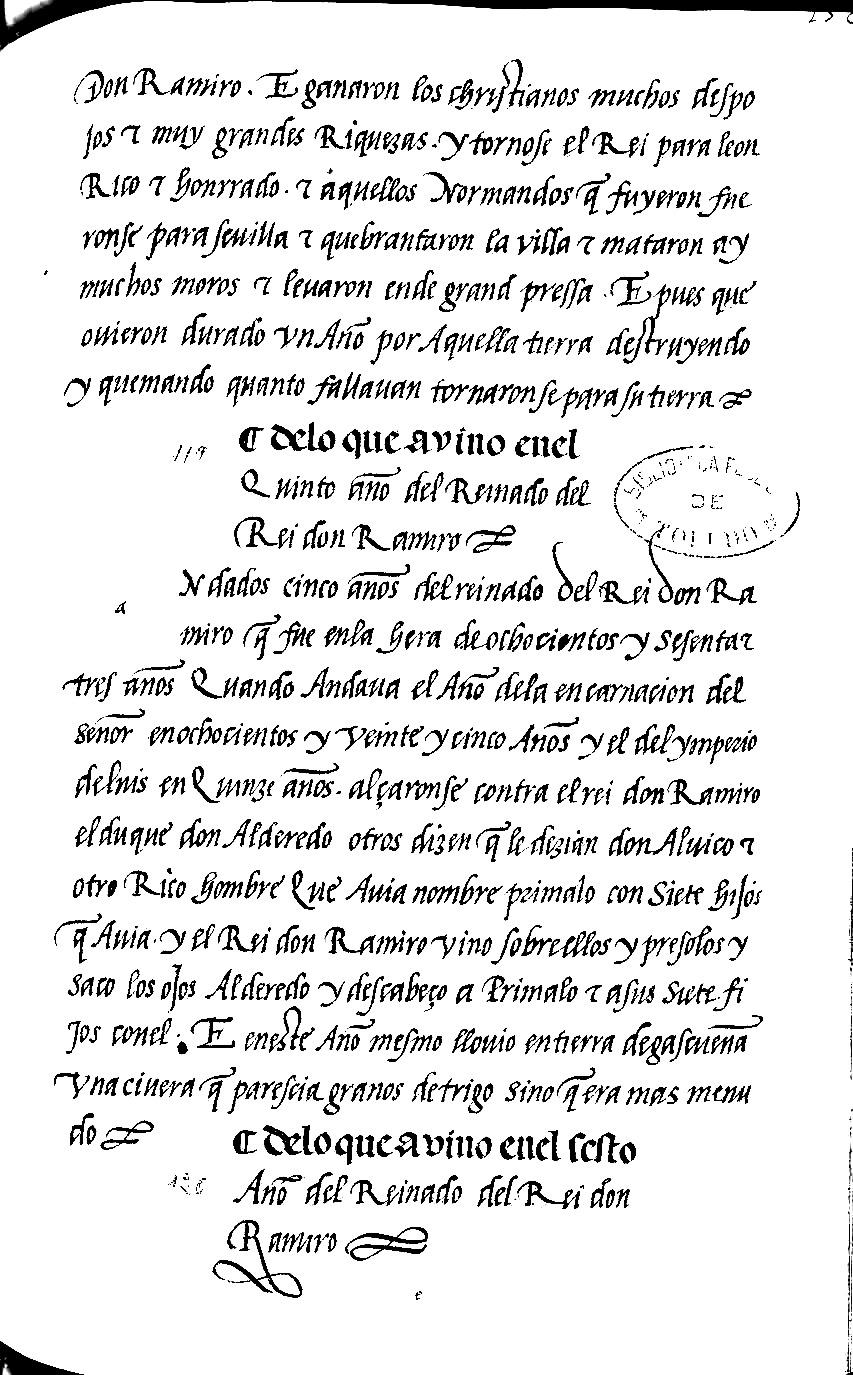 Don Ramiro. E ganaron los christianos muchos despo
jos τ muy grandes Riquezas. y tornose el Rei para leon
Rico τ honrrado. τ aquellos Normandos q̃ fuyeron fue
ronse para seuilla τ quebrantaron la villa τ mataron ay
muchos moros τ leuaron ende grand pressa. E pues que
ouieron durado vn Año por Aquella tierra destruyendo
y quemando quanto fallauan tornaronse para su tierra
119
¶ delo que avino enel
Quinto año del Reinado del
Rei don Ramiro
BIBLIOTECA
DE
TOLEDO
a
N dados cinco años del reinado del Rei don Ra
miro q̃ fue enla hera de ochocientos y sesenta τ
tres años Quando Andaua el Año dela encarnacion del
señor en ochocientos y veinte y cinco Años y el del ymperio
de luis en Quinze años. alçaronse contra el rei don Ramiro
el duque don Alderedo otros dizen q̃ le dezian don Aluico τ
otro Rico hombre Que Auia nombre primalo con Siete hijos
q̃ Auia. y el Rei don Ramiro vino sobrellos y presolos y
saco los ojos Alderedo y descabeço a Primalo τ asus Siete fi
jos conel. E eneste Año mesmo llouio entierra degascueña
vna ciuera q̃ parescia granos detrigo sino q̃ era mas menu
do
¶ delo que avino enel sesto
Año del Reinado del Rei don
Ramiro
e